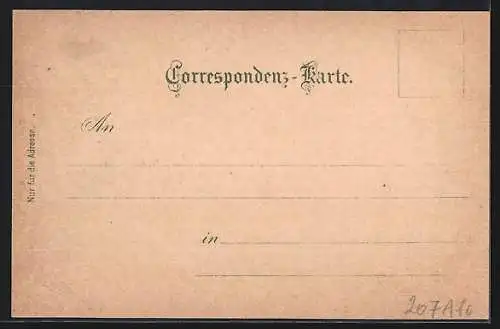 Correspondenz-Karte.
An
in
Nur für die Adresse.
207A16